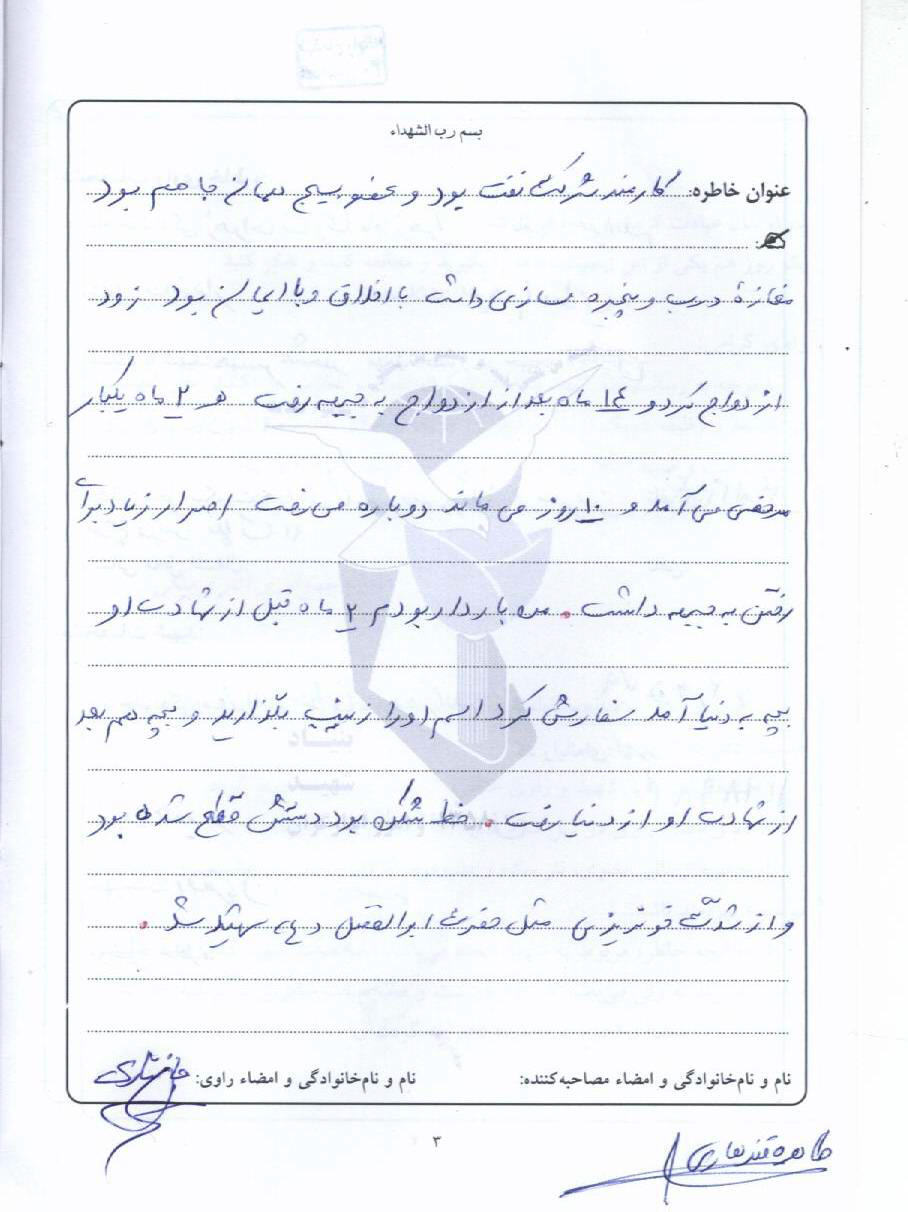 بسم رب الشهداء
عنوان خاطره: کارمند شرکت نفت بود و عضو بسیج همان جا هم بود
مغازهٔ درب و پنجره سازی داشت با اخلاق و با ایمان بود زود
ازدواج کرد و ۱۴ ماه بعد از ازدواج به جبهه رفت هر ۲ ماه یکبار
مرخصی می آمد و ۱۰ روز می ماند دوباره می رفت اصرار زیاد برای
رفتن به جبهه داشت. من باردار بودم ۲ ماه قبل از شهادت او
بچه به دنیا آمد سفارش کرد اسم او را زینب بگذارید و بچه هم بعد
از شهادت او از دنیا رفت. خط شکن بود دستش قطع شده بود
و از شدت خونریزی مثل حضرت ابوالفضل (ع) شهید شد.
نام و نام‌خانوادگی و امضاء مصاحبه‌کننده:
نام و نام‌خانوادگی و امضاء راوی:
۳
طاهره قندهاری